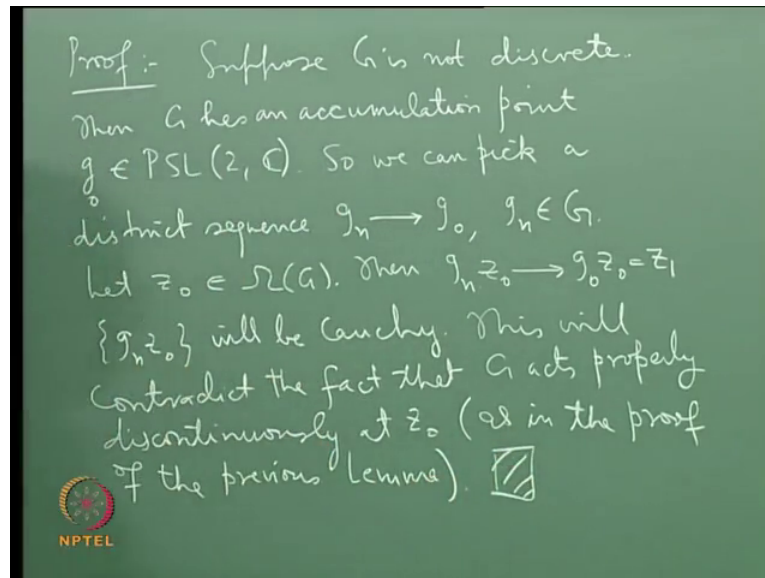 Proof :- Suppose G is not discrete.
Then G has an accumulation point
g₀ ∈ PSL(2, ℂ). So we can pick a
distinct sequence gₙ ⟶ g₀, gₙ ∈ G.
Let z₀ ∈ Ω(G). Then gₙ z₀ ⟶ g₀ z₀ = z₁
{gₙ z₀} will be Cauchy. This will
contradict the fact that G acts properly
discontinuously at z₀ (as in the proof
of the previous Lemma).
NPTEL